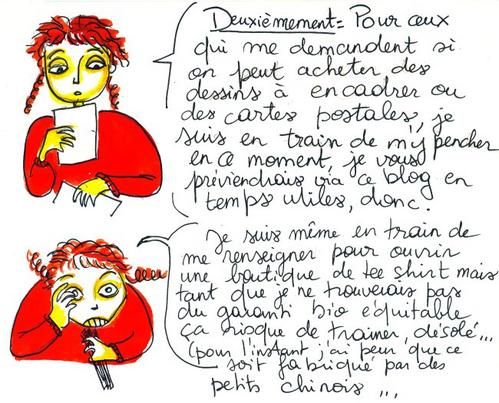 Deuxièmement = Pour ceux
qui me demandent si
on peut acheter des
dessins à encadrer ou
des cartes postales, je
suis en train de m'y pencher
en ce moment, je vous
préviendrais via ce blog en
temps utiles, donc.
Je suis même en train de
me renseigner pour ouvrir
une boutique de tee shirt mais
tant que je ne trouverais pas
du garanti bio équitable
ça risque de trainer, désolé...
(pour l'instant j'ai peur que ce
soit fabriqué par des
petits chinois ...